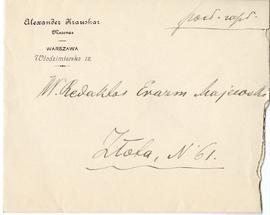 Alexander Kraushar
Mecenas
WARSZAWA
Włodzimierska 12.
W. Redaktor Erazm Majewski
Złota, N 61.